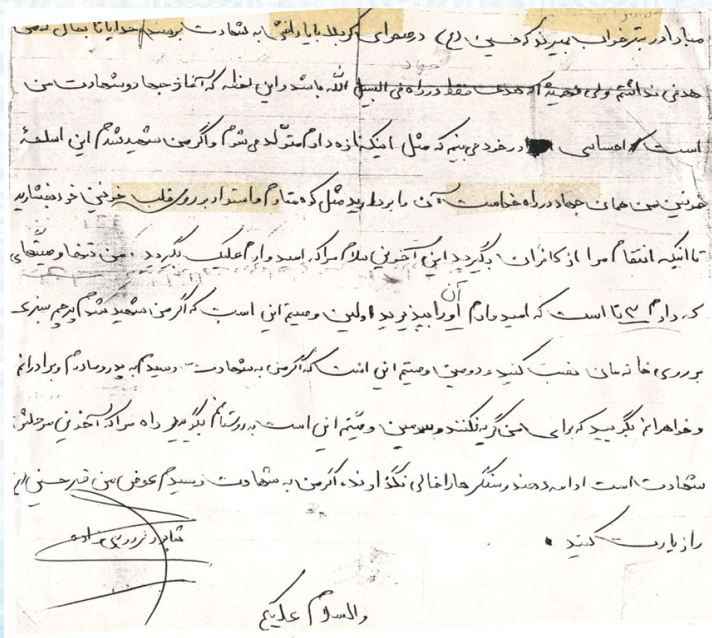 مبادا در بستر خواب بمیرند که حسین (ع) در صحرای کربلا با یارانش به شهادت برسند خدایا تا بحال
هدفی نداشتم ولی که هدف فقط در راه فی السبیل الله باشد و این لحظه که آغاز جهاد و شهادت من
است احساسی در خود می بینم که مثل اینکه تازه دارم متولد می شوم و اگر من شهید شدم این اسلحهٔ
خونین من همان جهاد در راه خداست آن را بردارید مثل کوه مقاوم و استوار بر روی قلب خونین خود بفشارید
تا اینکه انتقام مرا از کافران بگیرید این آخرین سلام مرا که امیدوارم علیک بگویید . من تنها وصیتهای
که دارم ۳ تا است که امیدوارم آن را بپذیرید اولین وصیتم این است که اگر من شهید شدم پرچم سبزی
بر روی خانه مان نصب کنید و دومین وصیتم این است که اگر من به شهادت رسیدم به پدر و مادرم و برادرانم
و خواهرانم بگویید که برای من گریه نکنند و سومین وصیتم این است به دوستانم بگویید راه مرا که آخرین مرحلش
شهادت است ادامه دهند و سنگرها را خالی نگذارند، اگر من به شهادت رسیدم عوض من قبر حسین (ع)
را زیارت کنید .
والسلام علیکم